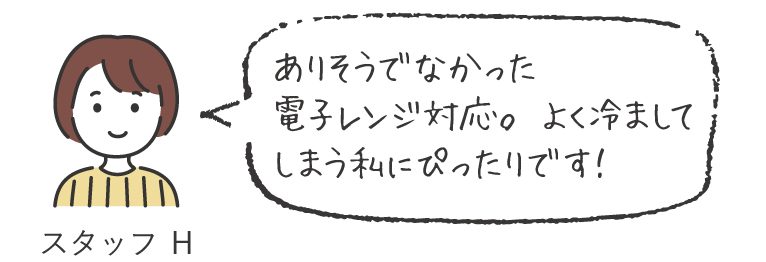 ありそうでなかった
電子レンジ対応。よく冷まして
しまう私にぴったりです!
スタッフ H